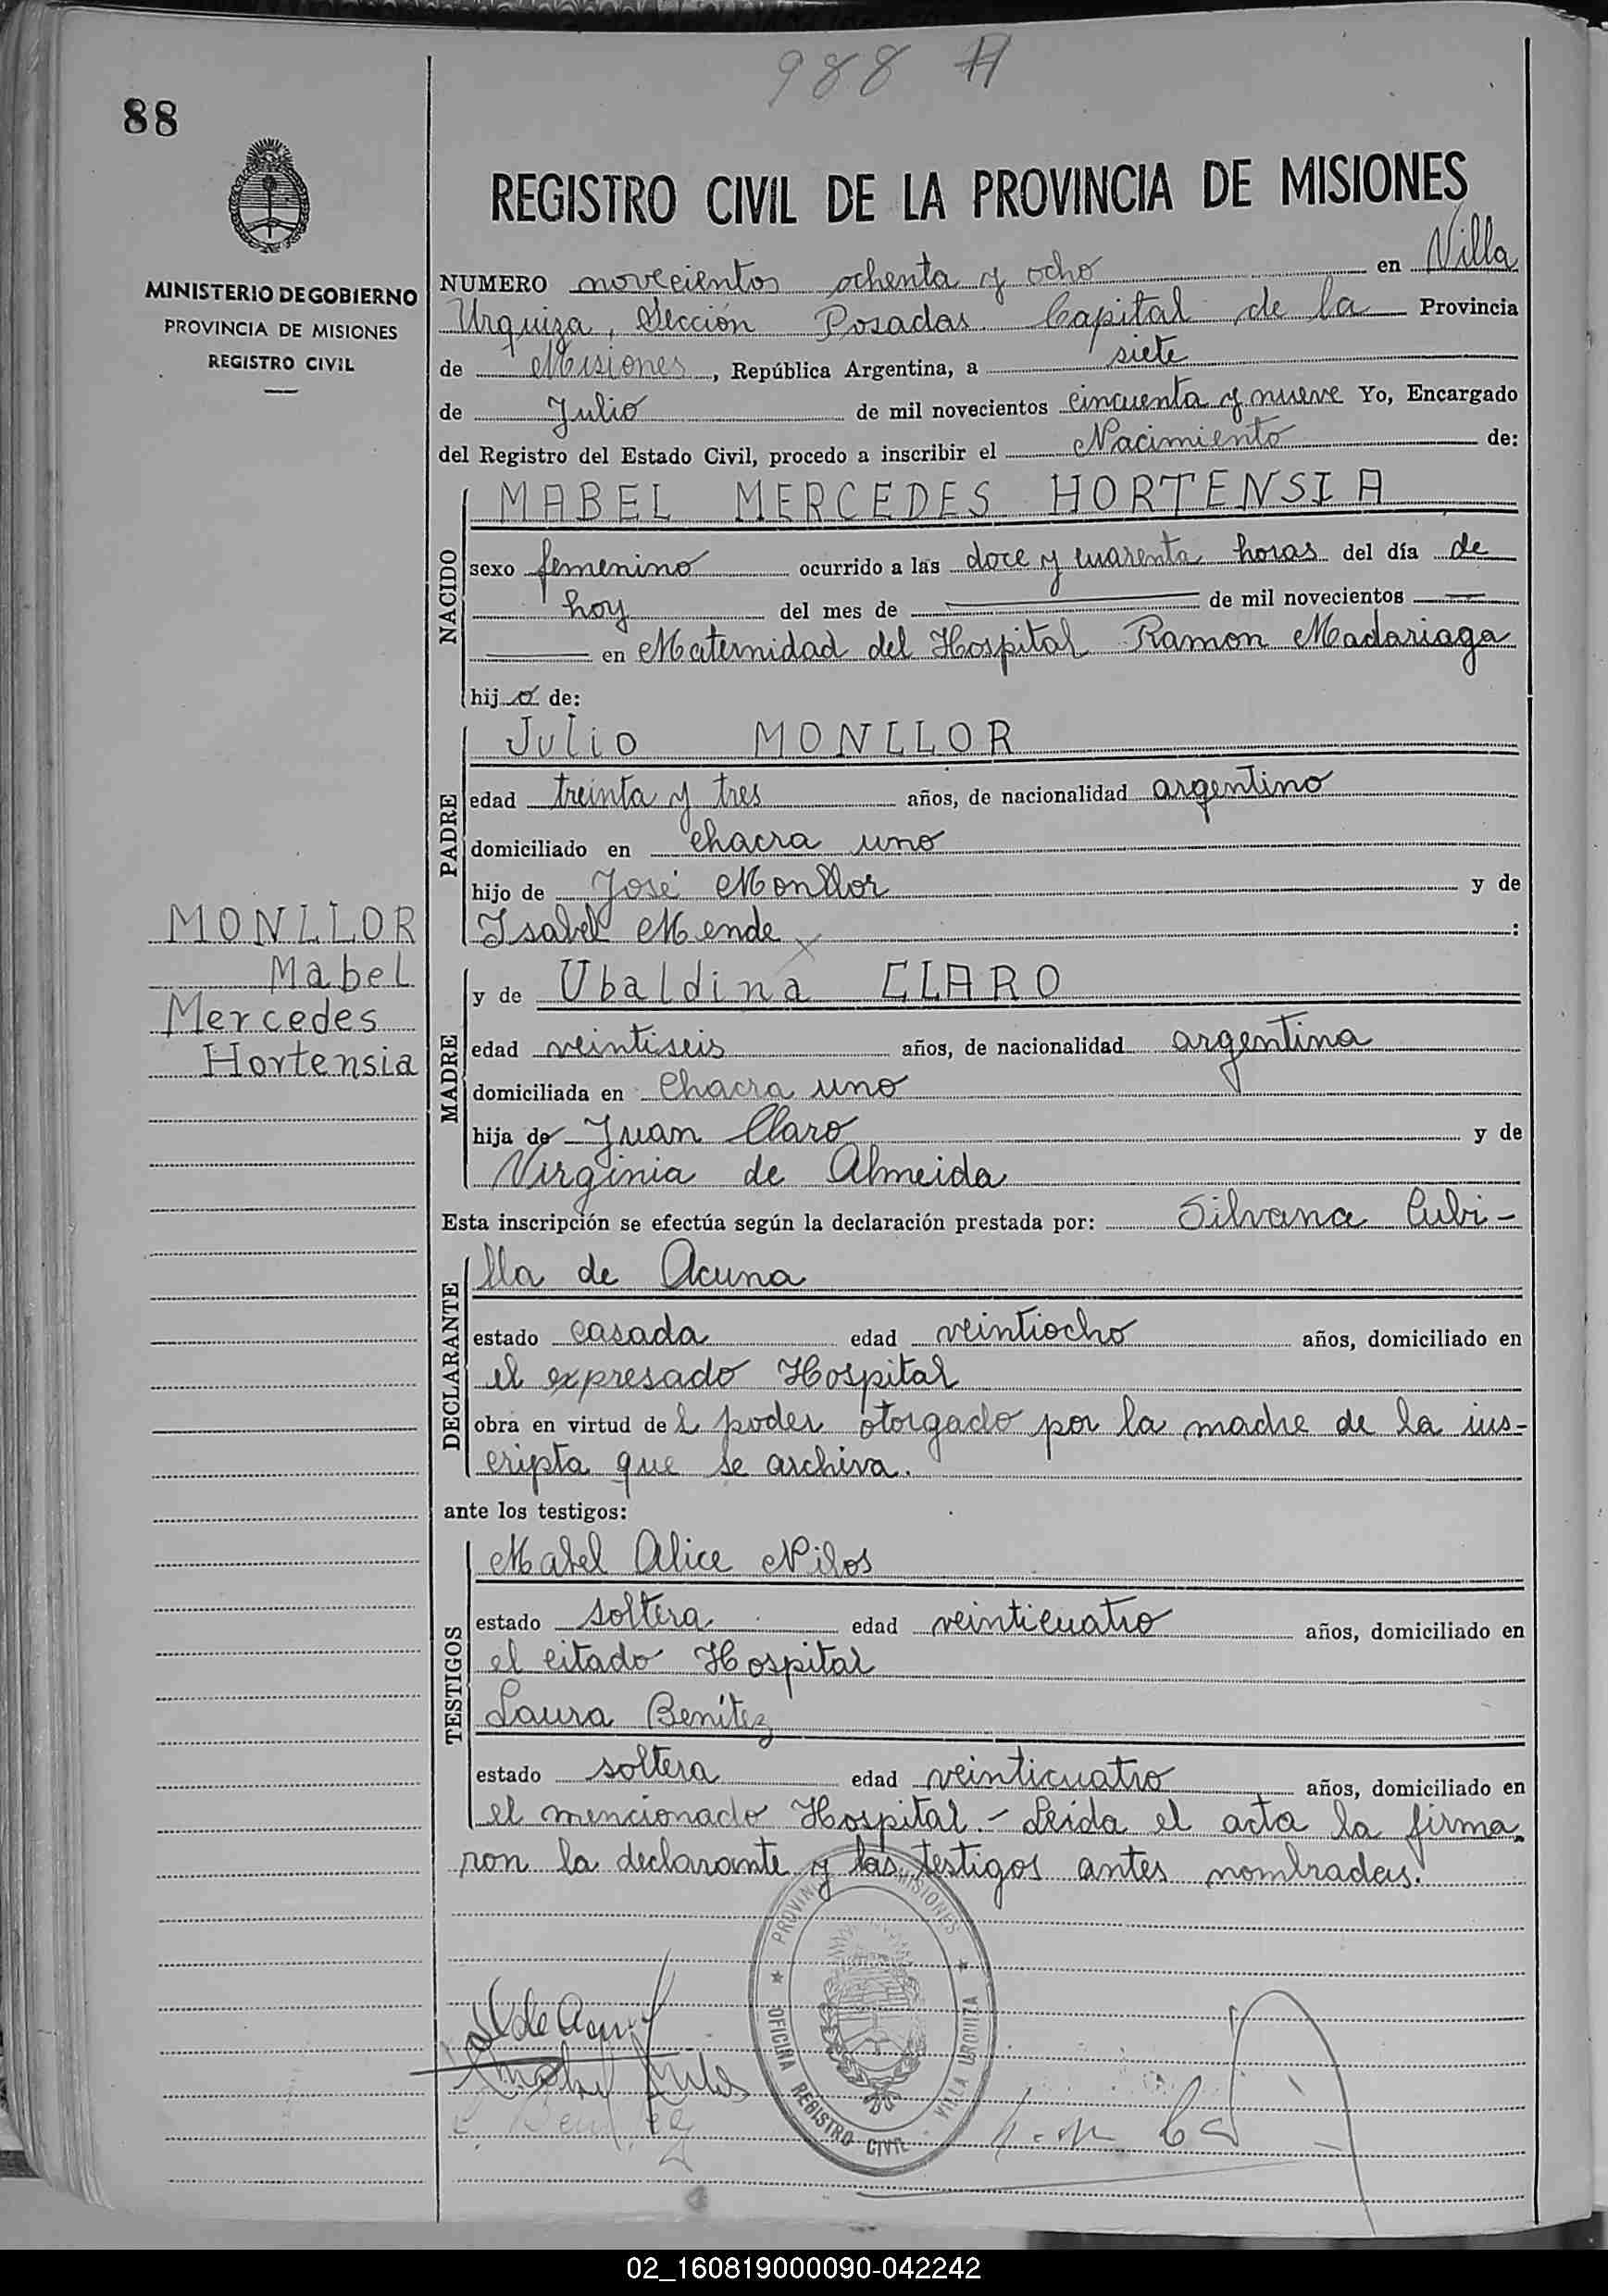 988 A
88
REGISTRO CIVIL DE LA PROVINCIA DE MISIONES
MINISTERIO DE GOBIERNO
PROVINCIA DE MISIONES
REGISTRO CIVIL
NUMERO novecientos ochenta y ocho en Villa
Urquiza, Sección Posadas Capital de la Provincia
de Misiones, República Argentina, a siete
de Julio de mil novecientos cincuenta y nueve Yo, Encargado
del Registro del Estado Civil, procedo a inscribir el Nacimiento de:
NACIDO
MABEL MERCEDES HORTENSIA
sexo femenino ocurrido a las doce y cuarenta horas del día de
hoy del mes de de mil novecientos
en Maternidad del Hospital Ramon Madariaga
hija de:
PADRE
Julio MONLLOR
edad treinta y tres años, de nacionalidad argentino
domiciliado en chacra uno
hijo de José Monllor y de
Isabel Mende :
MONLLOR
Mabel
Mercedes
Hortensia
MADRE
y de Ubaldina CLARO
edad veintiseis años, de nacionalidad argentina
domiciliada en Chacra uno
hija de Juan Claro y de
Virginia de Almeida
Esta inscripción se efectúa según la declaración prestada por: Silvana Cubi-
DECLARANTE
lla de Acuna
estado casada edad veintiocho años, domiciliado en
el expresado Hospital
obra en virtud del poder otorgado por la madre de la ins-
cripta que se archiva.
ante los testigos:
TESTIGOS
Mabel Alice Nilos
estado soltera edad veinticuatro años, domiciliado en
el citado Hospital
Laura Benítez
estado soltera edad veinticuatro años, domiciliado en
el mencionado Hospital.- Leida el acta la firma
ron la declarante y las testigos antes nombradas.
PROVINCIA MISIONES
OFICINA REGISTRO CIVIL VILLA URQUIZA
02_160819000090-042242